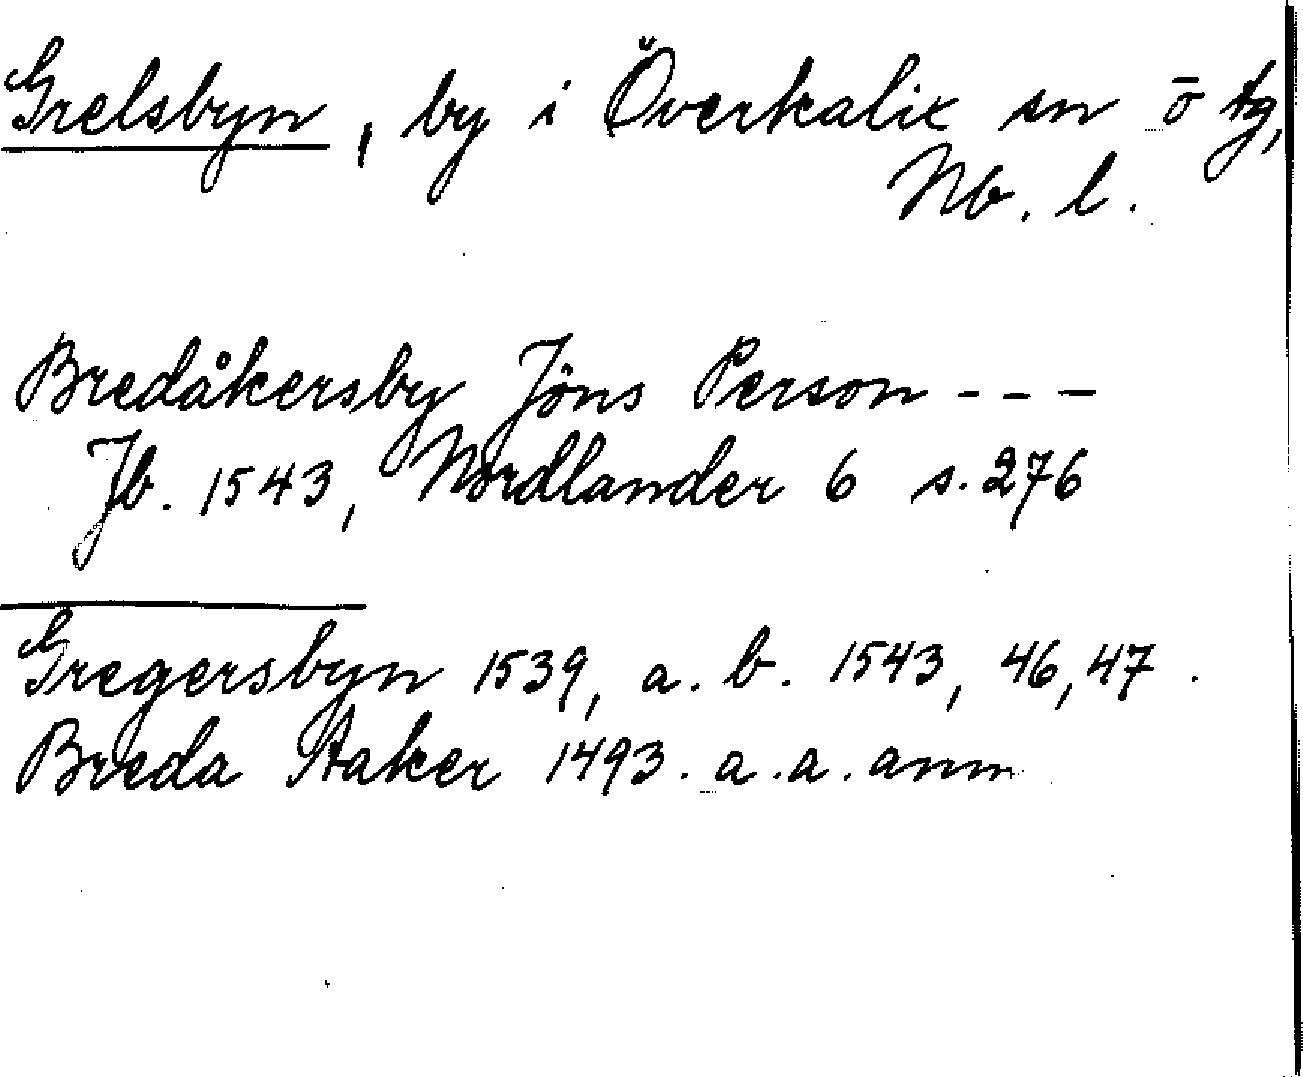 Grelsbyn, by i Överkalix sn ō tg,
Nb. l.
Bredåkersby Jöns Person - - -
Jb. 1543, Nordlander 6 s. 276
Gregersbyn 1539, a. b. 1543, 46, 47.
Breda Staker 1493. a. a. anm